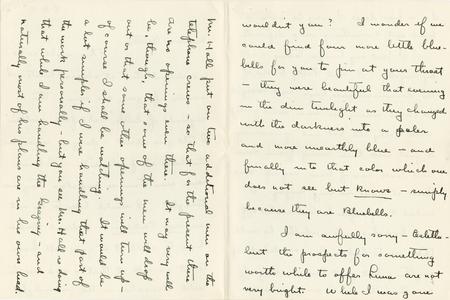 wouldn't you? I wonder if we
could find four more little blue-
bells for you to pin at your throat
- they were beautiful that evening
in the dim twilight as they changed
with the darkness into a paler
and more unearthly blue - and
finally into that color which one
does not see but knows - simply
because they are Bluebells.
I am awfully sorry -
but the prospects for something
worth while to offer are not
very bright. While I was gone
Mr. Hall put on two additional men on the
telephone crews - so that for the present there
are no openings even there. It may very well
be, though, that one of the men will drop
out or that some other openings will turn up -
of course I shall be watching. It would be
a lot simpler if I were handling that part of
the work personally - but you see Mr. Hall is doing
that while I am handling the Grazing - and
naturally most of his plans are in his own head.